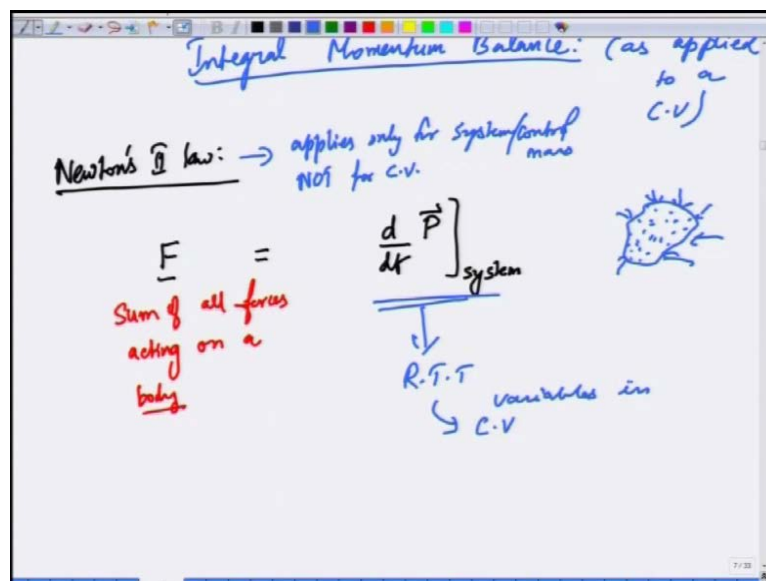 Integral Momentum Balance: (as applied
to a
C.V)
Newton's II law: → applies only for system/control
mass
NOT for C.V.
F = d/dt P⃗ ]system
Sum of all forces
acting on a
body
R.T.T
variables in
C.V
7/33